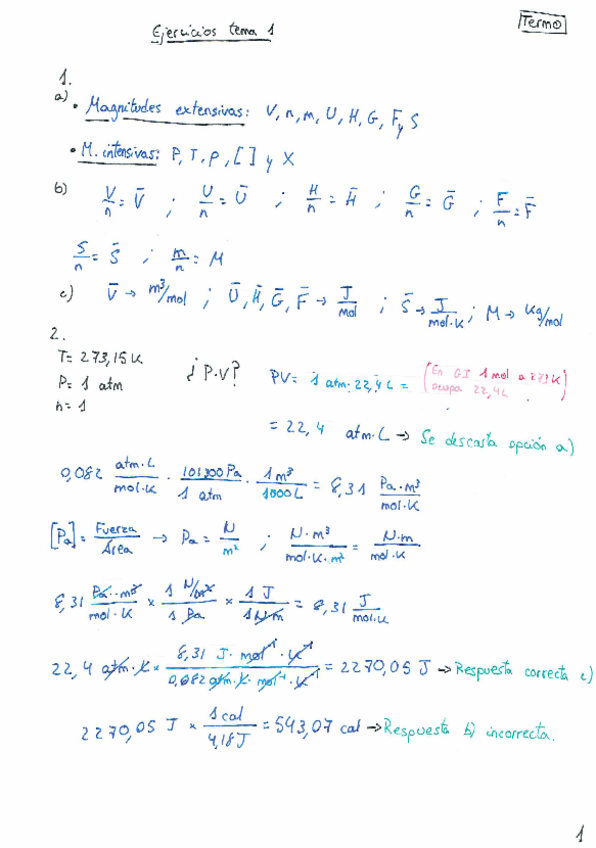 Ejercicios tema 1
Termo
1.
a) • Magnitudes extensivas: V, n, m, U, H, G, F y S
• M. intensivas: P, T, ρ, [ ] y X
b) V/n = V̄ ; U/n = Ū ; H/n = H̄ ; G/n = Ḡ ; F/n = F̄
S/n = S̄ ; m/n = M
c) V̄ → m³/mol ; Ū, H̄, Ḡ, F̄ → J/mol ; S̄ → J/mol·K ; M → Kg/mol
2.
T = 273,15 K
P = 1 atm
n = 1
¿P·V?
PV = 1 atm·22,4 L = (En GI 1 mol a 273 K ocupa 22,4 L)
= 22,4 atm·L → Se descarta opción a)
0,082 atm·L/mol·K · 101300 Pa/1 atm · 1 m³/1000 L = 8,31 Pa·m³/mol·K
[Pa] = Fuerza/Área → Pa = N/m² ; N·m³/mol·K·m² = N·m/mol·K
8,31 Pa·m³/mol·K × 1 N/m²/1 Pa × 1 J/1 N·m = 8,31 J/mol·K
22,4 atm·L × 8,31 J·mol⁻¹·K⁻¹/0,082 atm·L·mol⁻¹·K⁻¹ = 2270,05 J → Respuesta correcta c)
2270,05 J × 1 cal/4,18 J = 543,07 cal → Respuesta b) incorrecta.
1